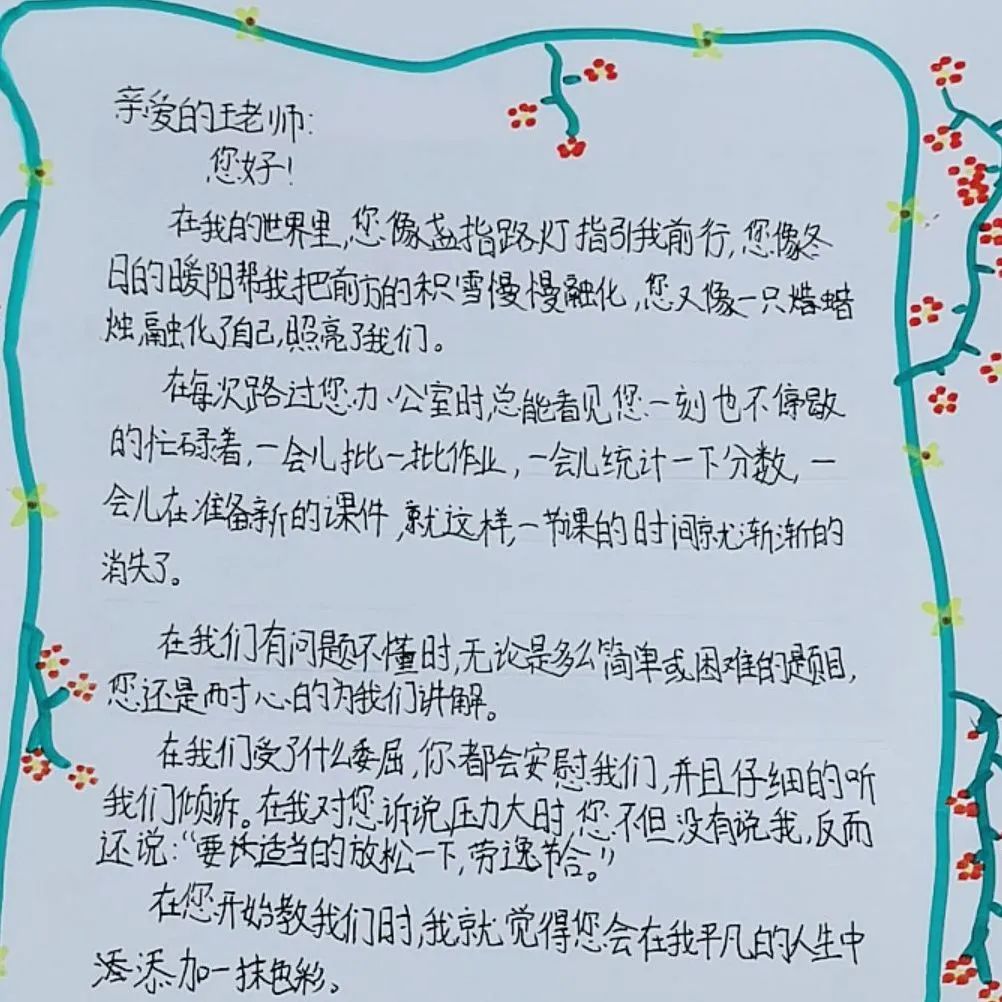 亲爱的王老师:
您好!
在我的世界里,您像盏指路灯指引我前行,您像冬
日的暖阳帮我把前方的积雪慢慢融化,您又像一只蜡
烛,融化了自己,照亮了我们。
在每次路过您办公室时,总能看见您一刻也不停歇
的忙碌着,一会儿批一批作业,一会儿统计一下分数,一
会儿在准备新的课件,就这样,一节课的时间就渐渐的
消失了。
在我们有问题不懂时,无论是多么简单或困难的题目,
您还是耐心的为我们讲解。
在我们受了什么委屈,你都会安慰我们,并且仔细的听
我们倾诉。在我对您诉说压力大时,您不但没有说我,反而
还说:“要适当的放松一下,劳逸节合。”
在您开始教我们时,我就觉得您会在我平凡的人生中
添加一抹色彩。